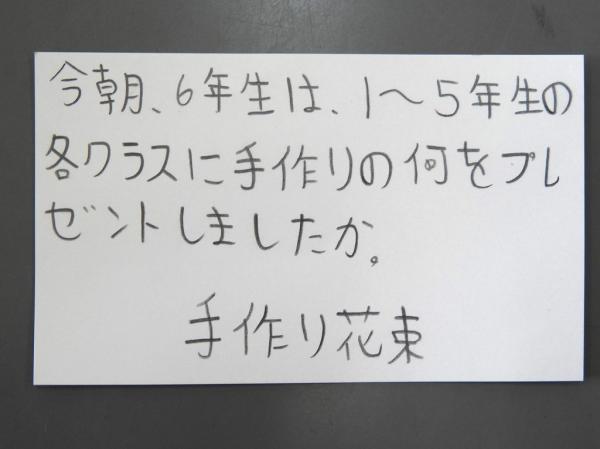 今朝、6年生は、1〜5年生の
各クラスに手作りの何をプレ
ゼントしましたか。
手作り花束